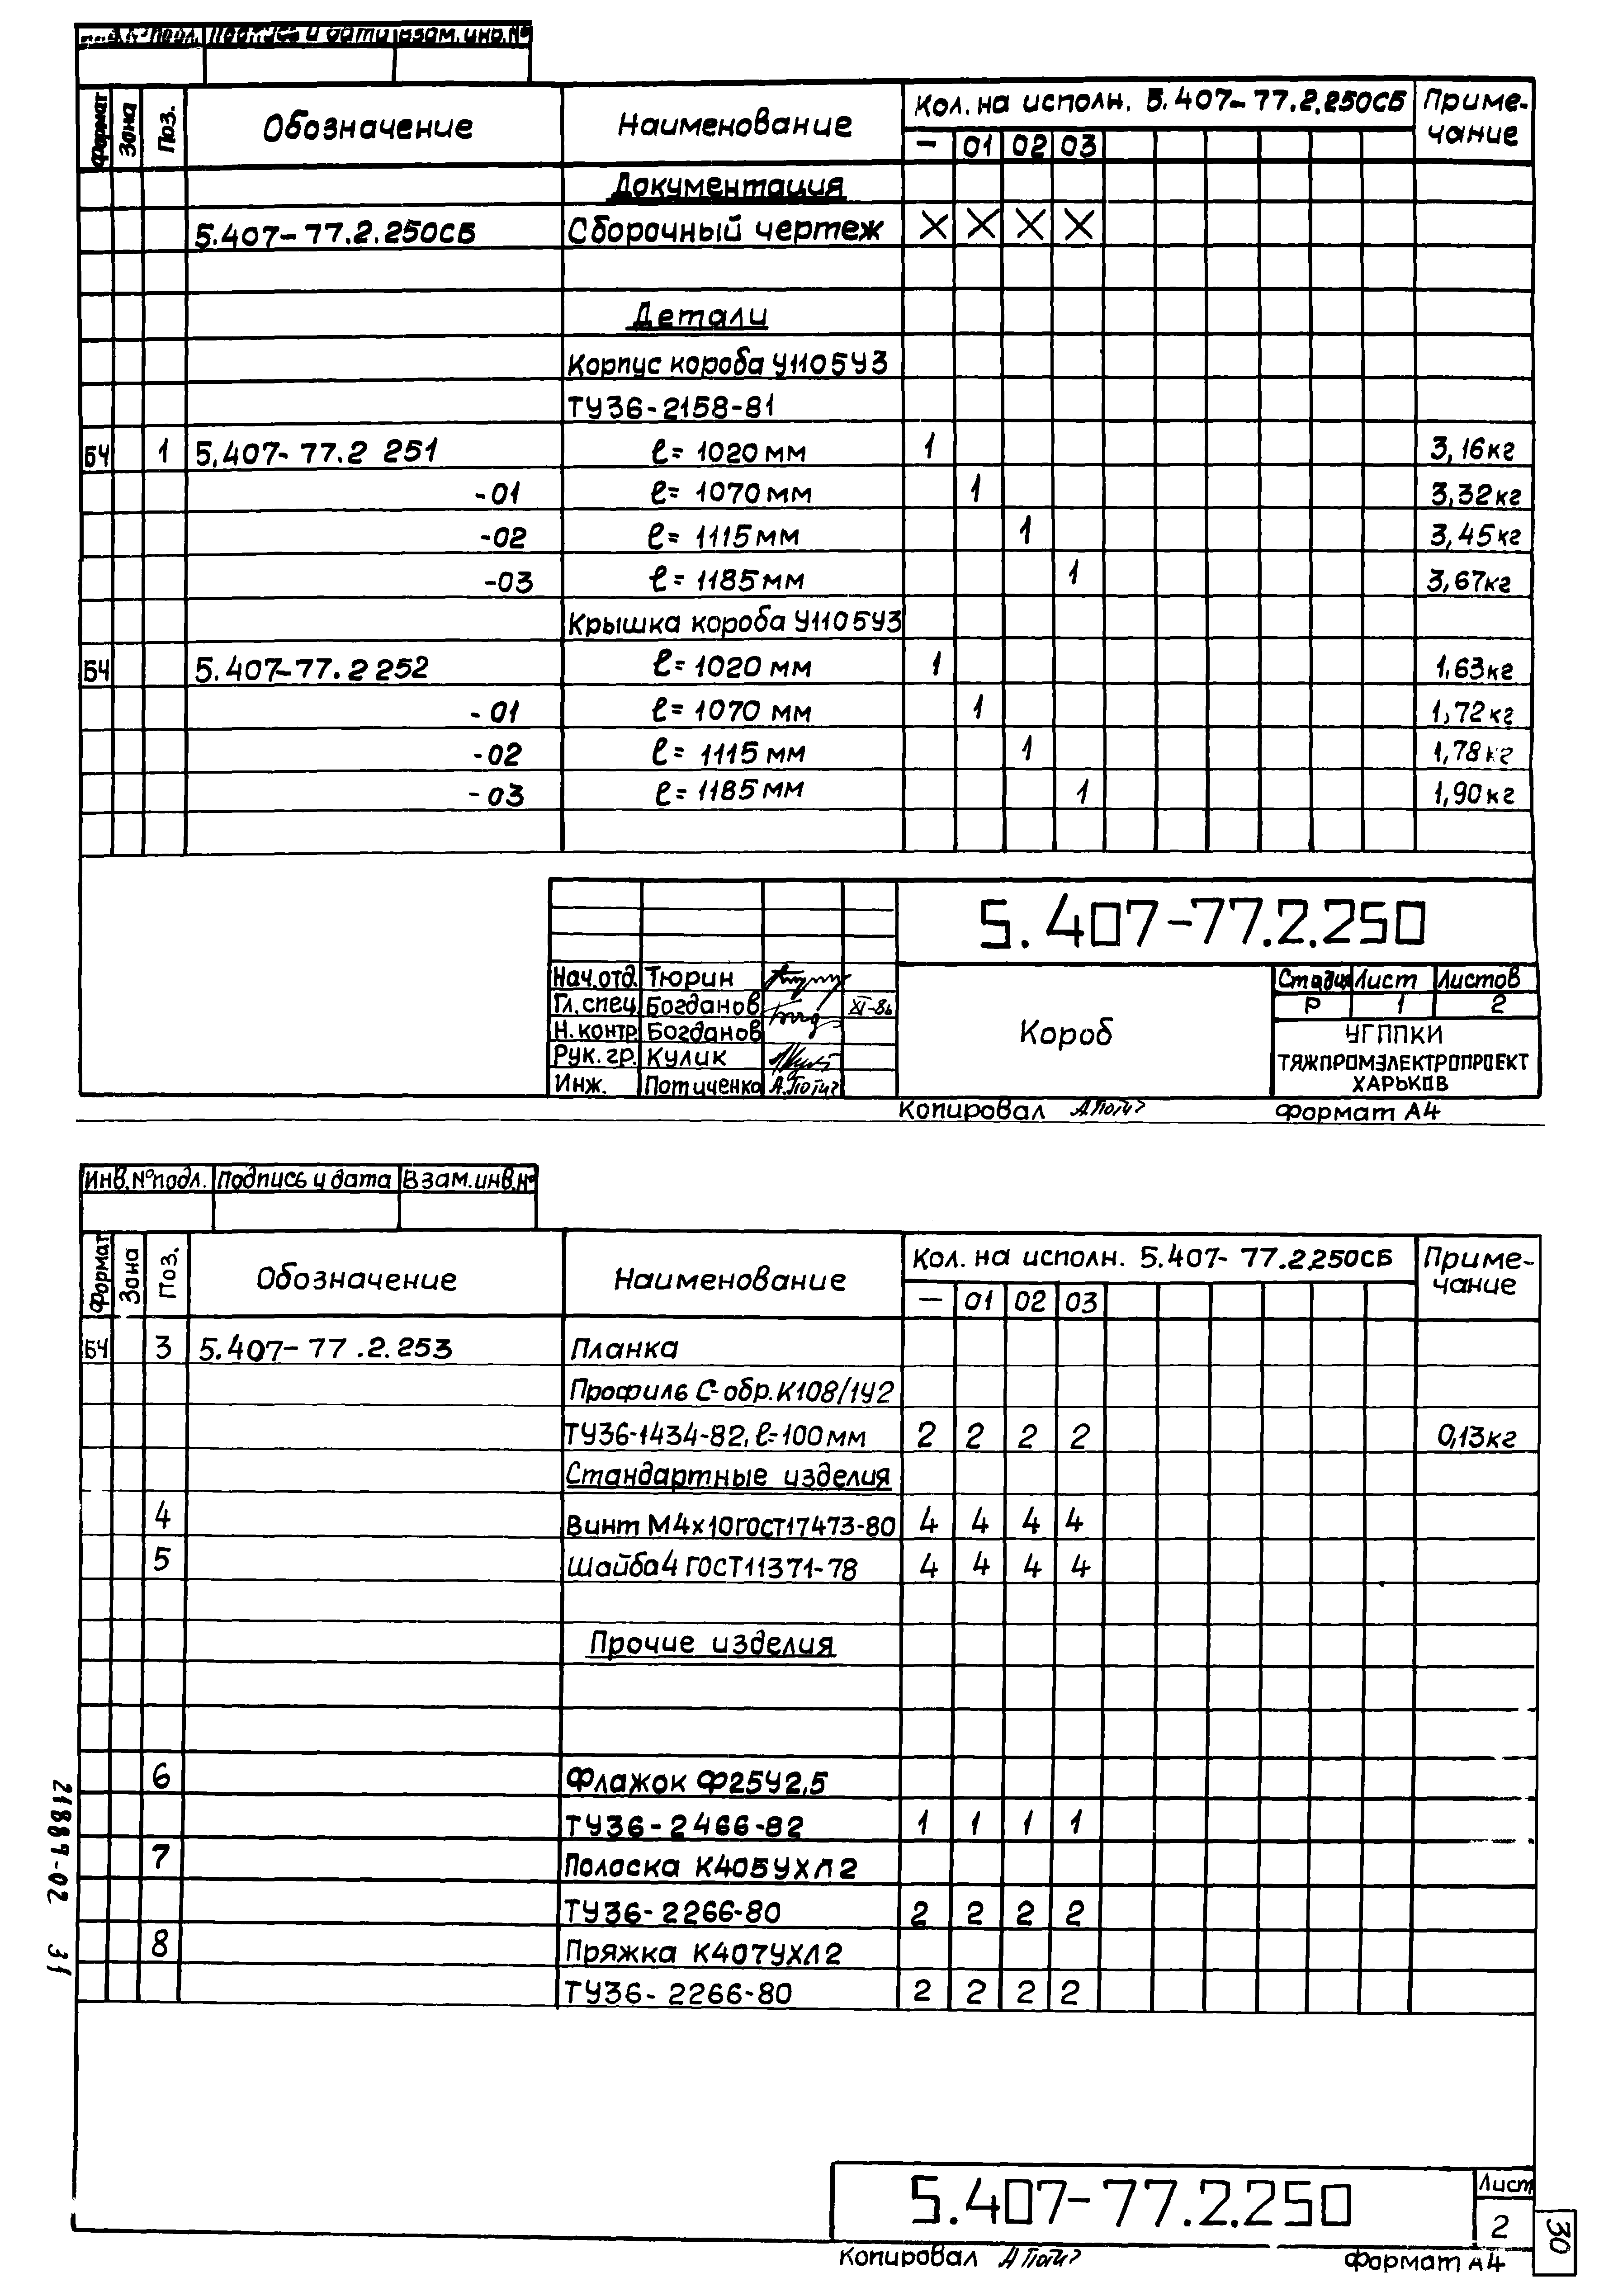 Подпись и дата Взам. инв. №
Формат Зона Поз. Обозначение Наименование Кол. на исполн. 5.407-77.2.250СБ Приме-
чание
— 01 02 03
Документация
5.407-77.2.250СБ Сборочный чертеж X X X X
Детали
Корпус короба У1105У3
ТУ36-2158-81
БЧ 1 5.407-77.2 251 ℓ= 1020 мм 1 3,16кг
-01 ℓ= 1070 мм 1 3,32кг
-02 ℓ= 1115 мм 1 3,45кг
-03 ℓ= 1185 мм 1 3,67кг
Крышка короба У1105У3
БЧ 5.407-77.2 252 ℓ= 1020 мм 1 1,63кг
-01 ℓ= 1070 мм 1 1,72кг
-02 ℓ= 1115 мм 1 1,78кг
-03 ℓ= 1185 мм 1 1,90кг
5.407-77.2.250
Нач.отд. Тюрин
Гл. спец. Богданов XI-86
Н. контр. Богданов
Рук. гр. Кулик
Инж. Потиченко
Короб
Стадия Лист Листов
Р 1 2
УГППКИ
ТЯЖПРОМЭЛЕКТРОПРОЕКТ
ХАРЬКОВ
Копировал Формат А4
Инв.№подл. Подпись и дата Взам.инв.№
Формат Зона Поз. Обозначение Наименование Кол. на исполн. 5.407-77.2.250СБ Приме-
чание
— 01 02 03
БЧ 3 5.407-77.2.253 Планка
Профиль С-обр. К108/1У2
ТУ36-1434-82, ℓ=100мм 2 2 2 2 0,13кг
Стандартные изделия
4 Винт М4х10 ГОСТ17473-80 4 4 4 4
5 Шайба 4 ГОСТ11371-78 4 4 4 4
Прочие изделия
6 Флажок Ф25У2,5
ТУ36-2466-82 1 1 1 1
7 Полоска К405УХЛ2
ТУ36-2266-80 2 2 2 2
8 Пряжка К407УХЛ2
ТУ36-2266-80 2 2 2 2
21889-02 31
5.407-77.2.250
Лист
2
30
Копировал Формат А4